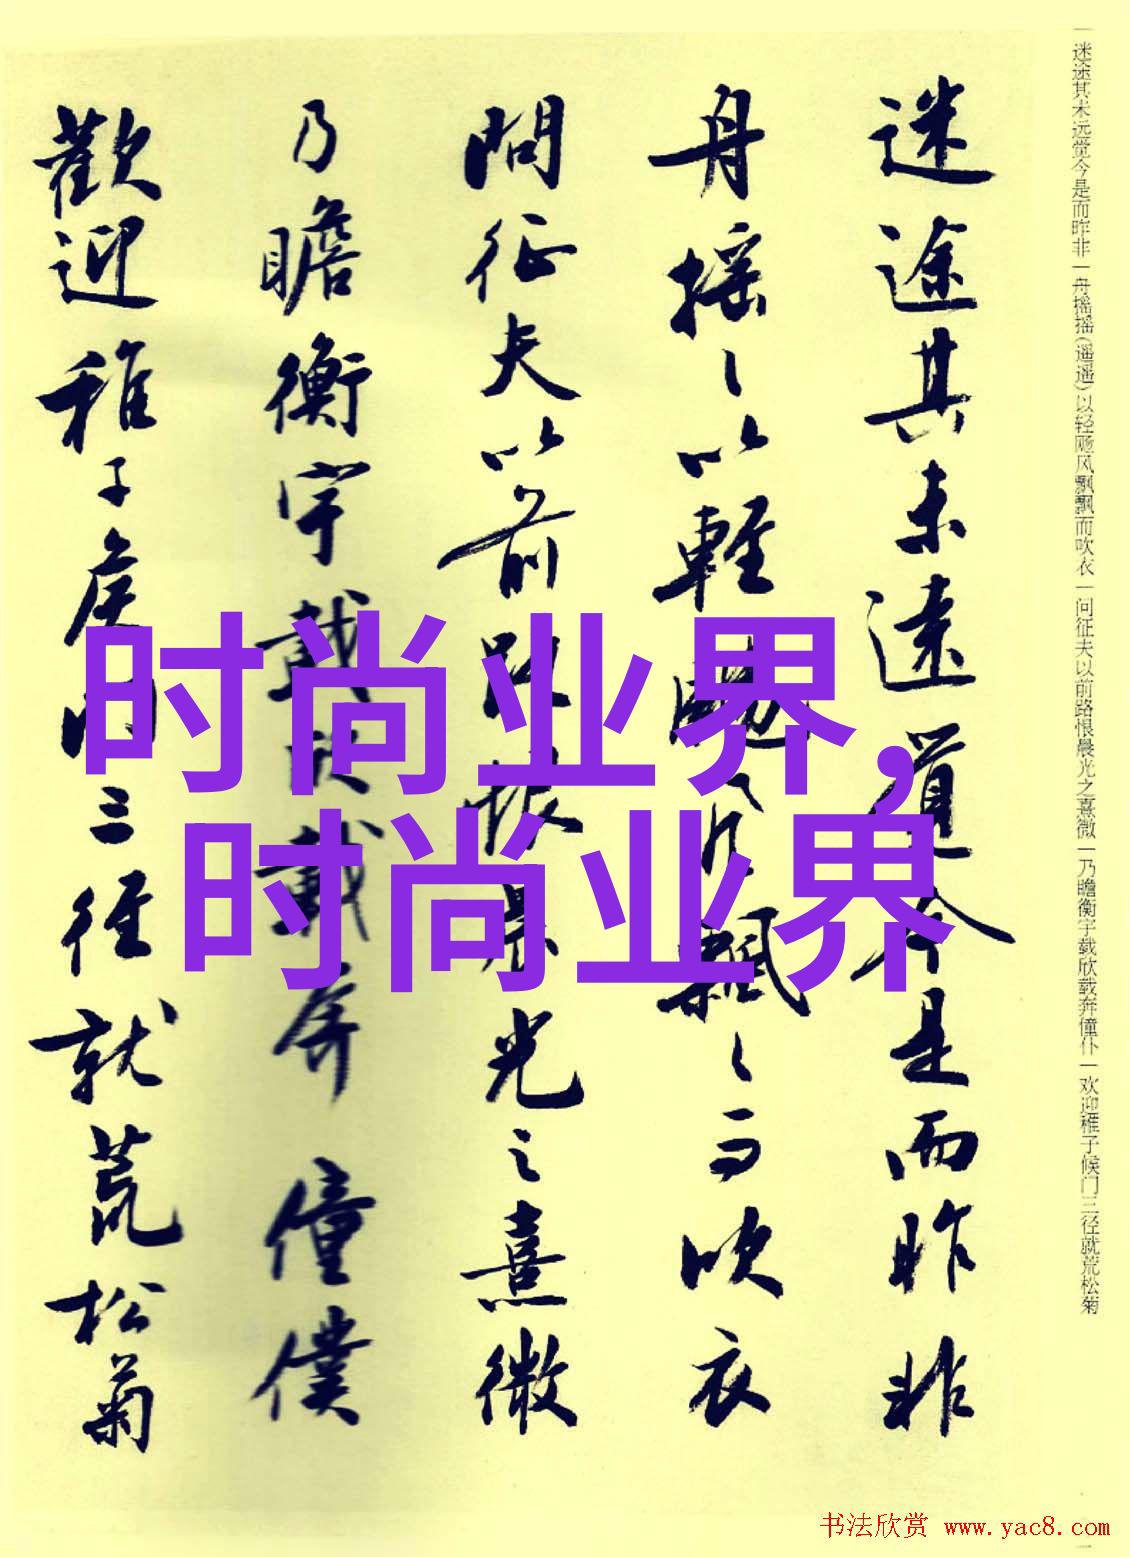 迷途其未远觉今是而昨非一舟摇摇(遥遥)以轻飏风飘飘而吹衣一问征夫以前路恨晨光之熹微一乃瞻衡宇载欣载奔僮仆一欢迎稚子候门三径就荒松菊
迷途其未遠道今是而昨非
舟摇々以輕颺風飄々而吹衣
問征夫以前路恨晨光之熹微
乃瞻衡宇載欣載奔僮僕
歡迎稚子候門三徑就荒松菊
时尚业界,
时尚业界
书法欣赏 www.yac8.com